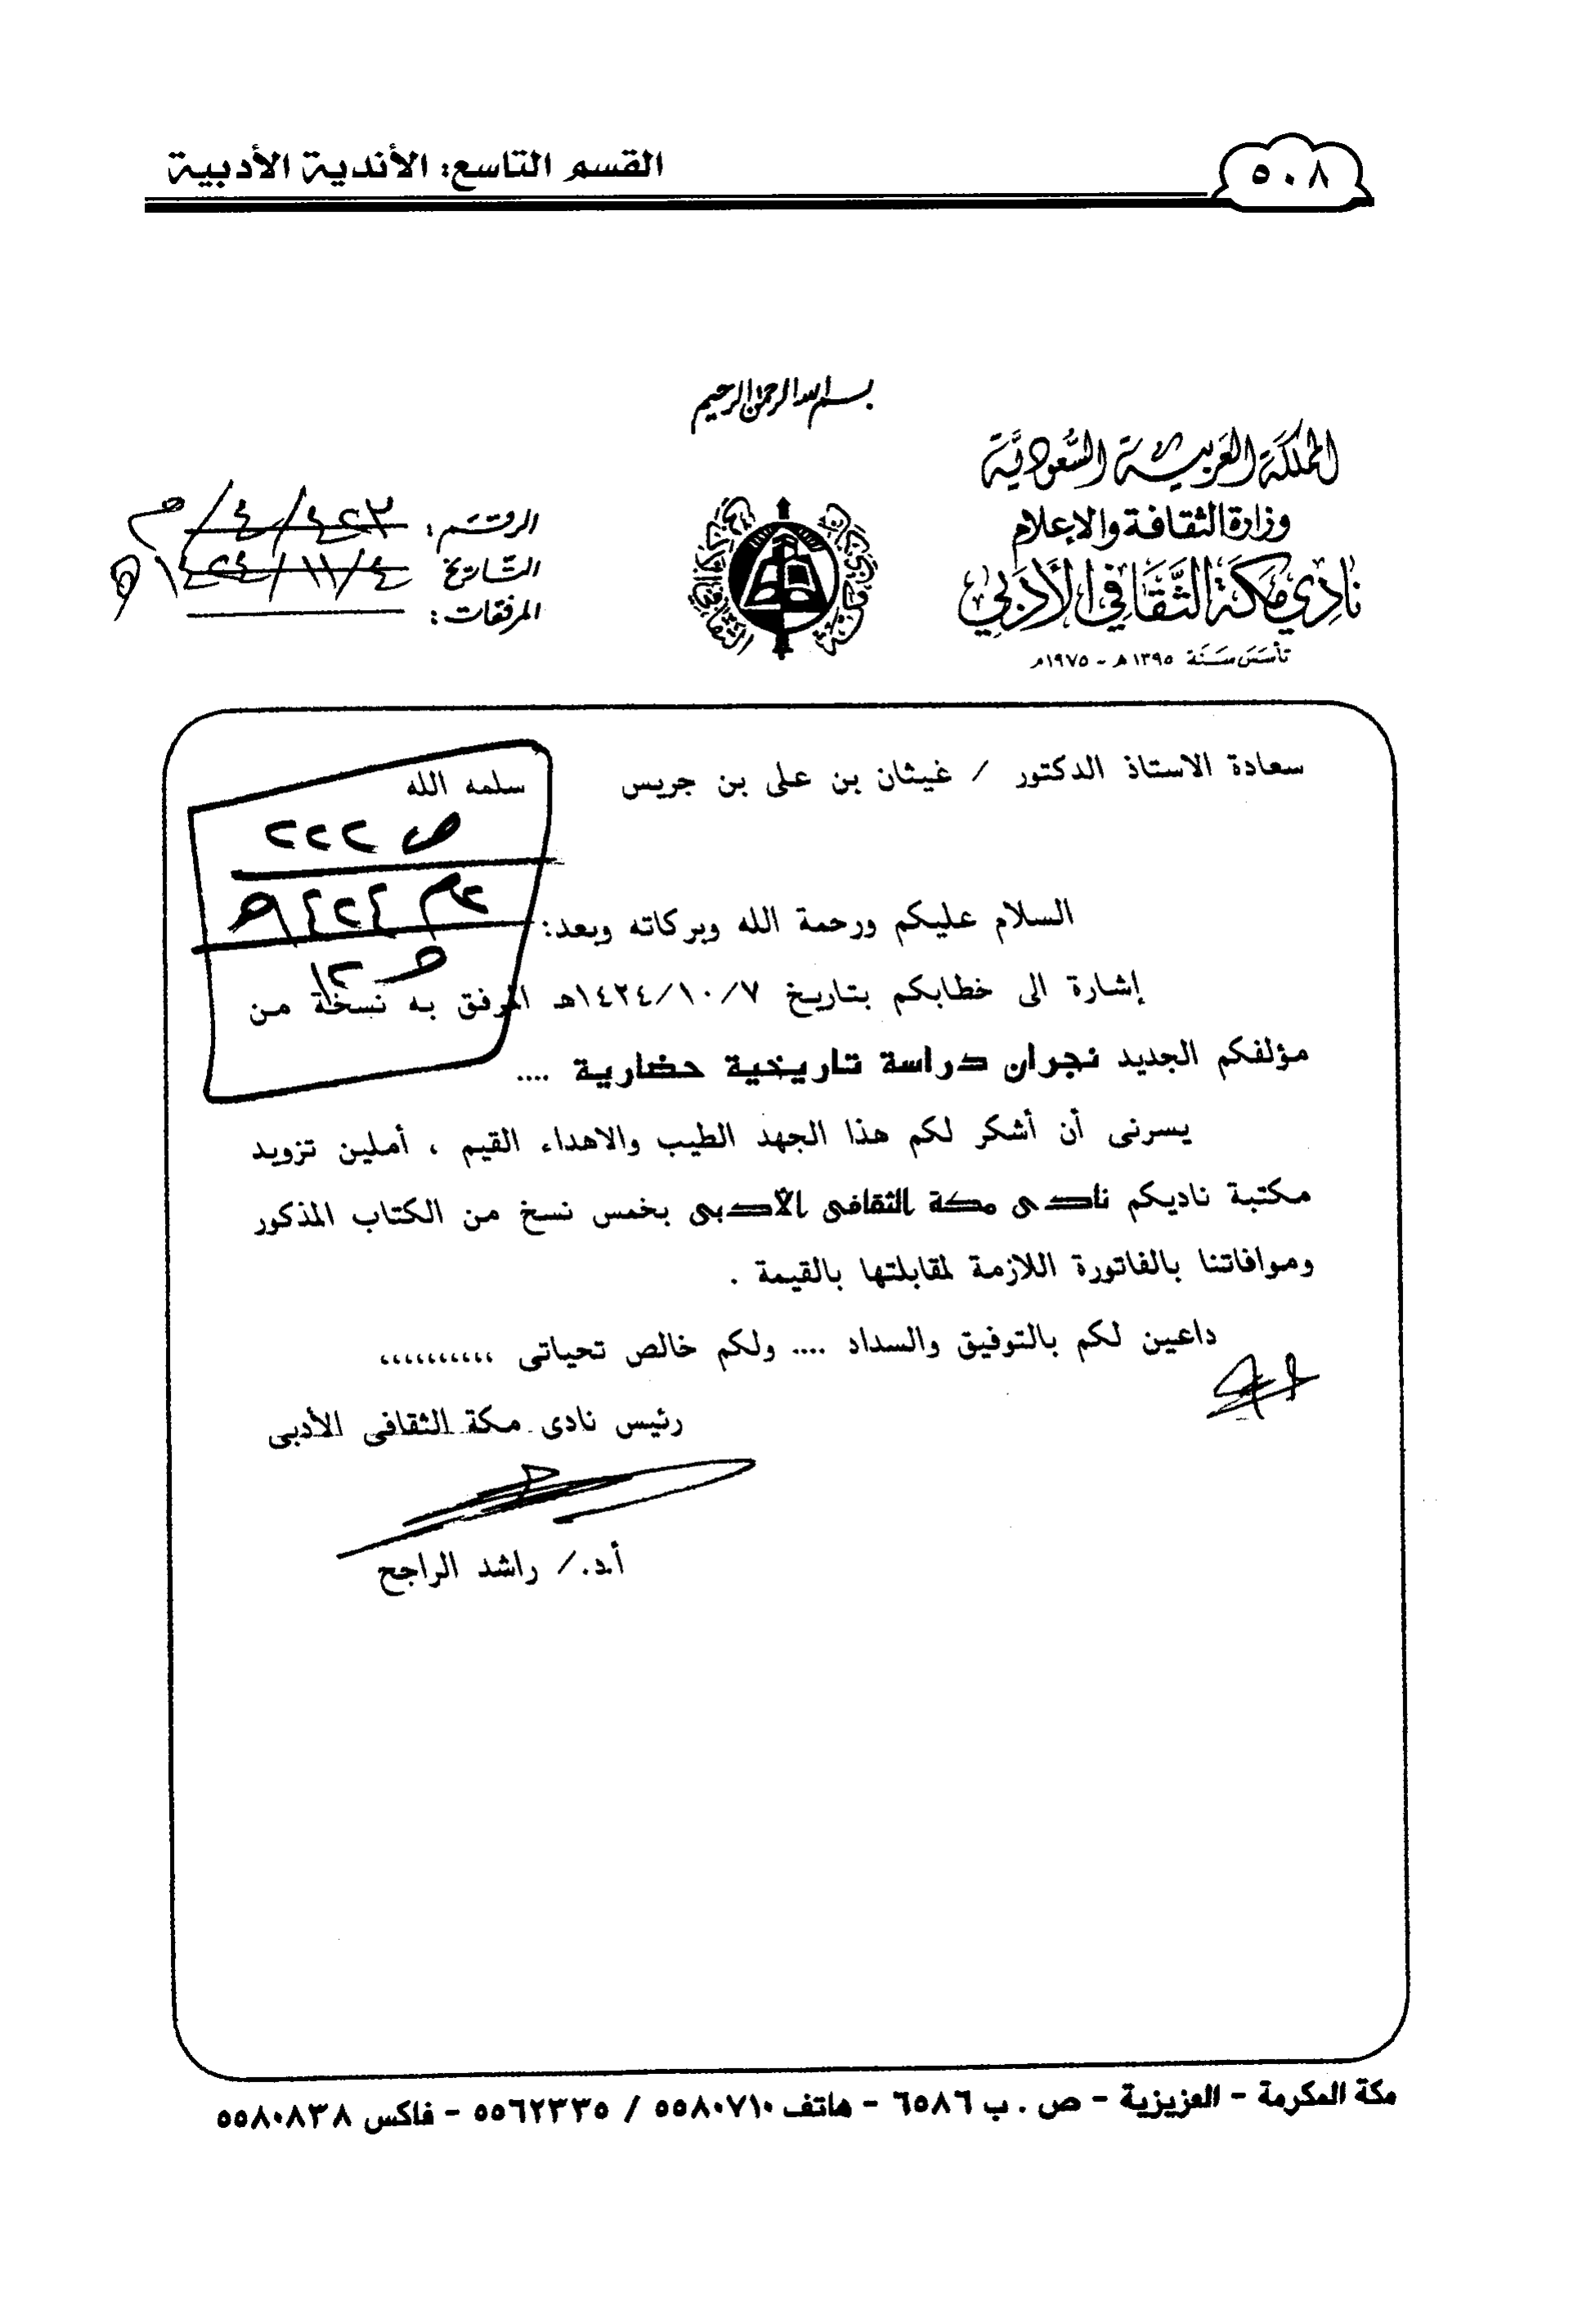 القسم التاسع: الأندية الأدبية
٥٠٨
بسم الله الرحمن الرحيم
المملكة العربية السعودية
وزارة الثقافة والإعلام
نادي مكة الثقافي الأدبي
تأسس سنة ١٣٩٥هـ - ١٩٧٥م
الرقم: ٤٢٣/٤/م
التاريخ ١٤٢٤/١١/٤هـ
المرفقات:
سعادة الاستاذ الدكتور / غيثان بن على بن جريس سلمه الله
ص ٢٢٢
١٤٢٤هـ
السلام عليكم ورحمة الله وبركاته وبعد:
إشارة الى خطابكم بتاريخ ١٤٢٤/١٠/٧هـ المرفق به نسخة من
مؤلفكم الجديد نجران دراسة تاريخية حضارية ....
يسرنى أن أشكر لكم هذا الجهد الطيب والاهداء القيم ، أملين تزويد
مكتبة ناديكم نادى مكة الثقافى الأدبى بخمس نسخ من الكتاب المذكور
وموافاتنا بالفاتورة اللازمة لمقابلتها بالقيمة .
داعين لكم بالتوفيق والسداد .... ولكم خالص تحياتى ،،،،،،،،،،
رئيس نادى مكة الثقافى الأدبى
أ.د./ راشد الراجح
مكة المكرمة - العزيزية - ص . ب ٦٥٨٦ - هاتف ٥٥٨٠٧١٠ / ٥٥٦٢٣٣٥ - فاكس ٥٥٨٠٨٣٨